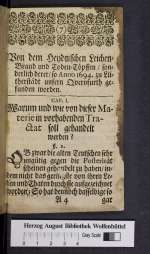 (7)
Von dem Heydnischen Leichen-
Brand und Todten-Töpffen / son-
derlich derer / so Anno 1694. zu Lü-
berstädt unsern Querfurth ge-
funden worden.
CAP. I.
Warum und wie von dieser Ma-
terie in vorhabenden Tra-
ctat soll gehandelt
werden?
§. 1.
OB zwar die alten Teutschen sehr
die Posterität
gehandelt zu haben / in-
dem nicht das von ihren Le-
ben und Thaten durch sie auffgezeichnet
worden; So hat dennoch dasselbige so
A 4 gar
Herzog August Bibliothek Wolfenbüttel
Grey Scale